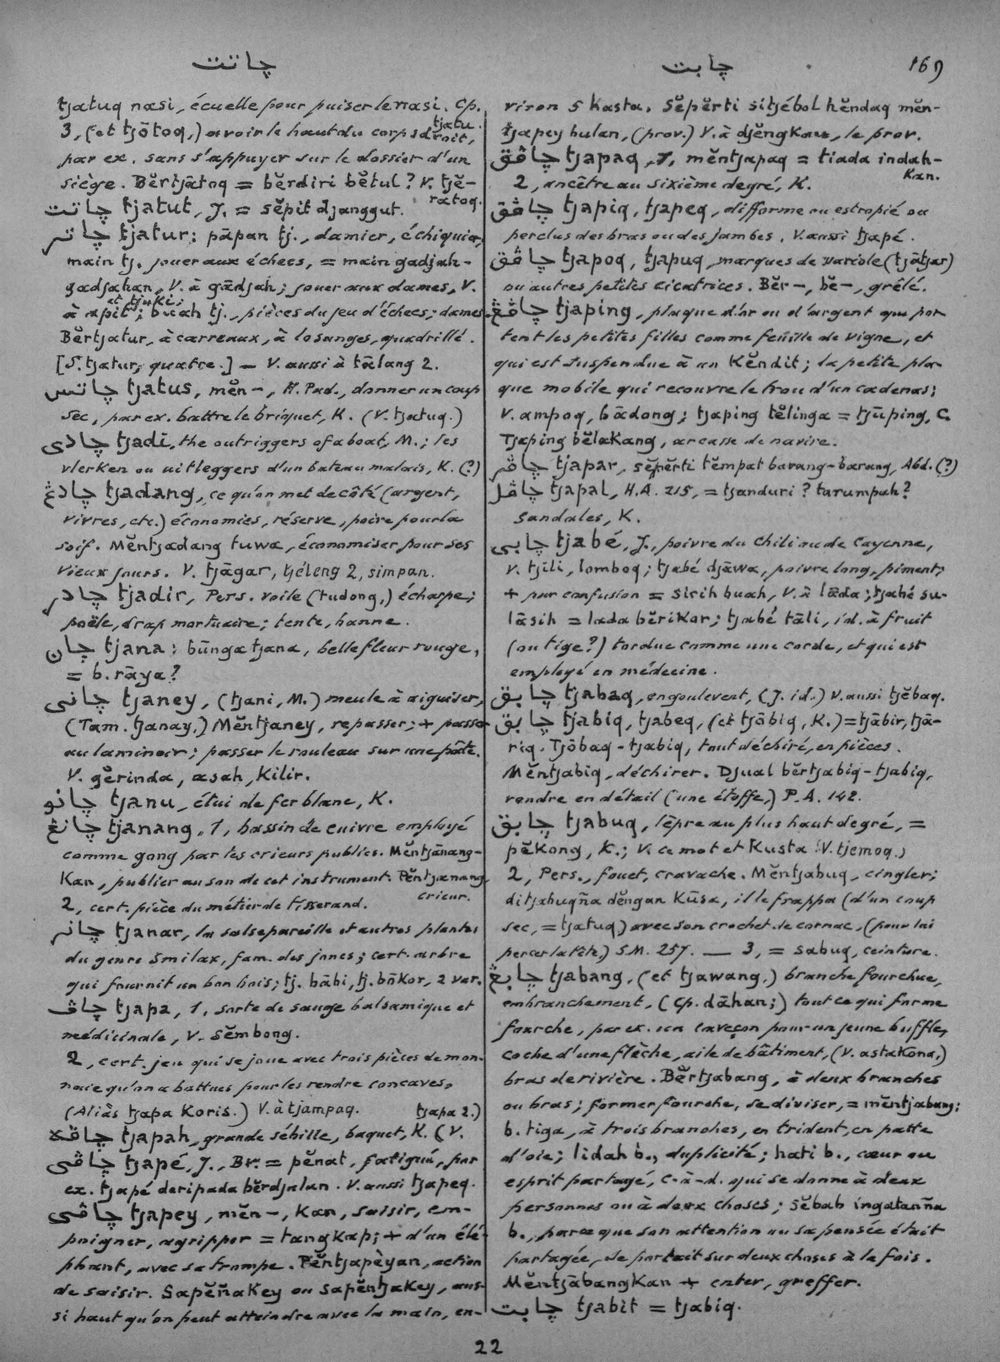 چاتت
چابت 169
tjatuq nasi, écuelle pour puiser le nasi. Cp.
3, (et tjōtoq,) avoir le haut du corps droit, tjatu.
par ex. sans s'appuyer sur le dossier d'un
siège. Bĕrtjātoq = bĕrdiri bĕtul? V. tjĕ-
ratoq.
چاتت tjatut, J. = sĕpit djanggut.
چاتر tjatur; pāpan tj., damier, échiquier,
main tj. jouer aux échecs, = main gadjah-
gadjahan, V. à gādjah; jouer aux dames, V.
à apit et tjuki; buah tj., pièces du jeu d'échecs; dames.
Bĕrtjatur, à carreaux, à losanges, quadrillé.
[S. tjatur, quatre.] — V. aussi à tālang 2.
چاتس tjatus, mĕn-, H. Pad., donner un coup
sec, par ex. battre le briquet, K. (V. tjatuq.)
چادى tjadi, the outriggers of a boat, M.; les
vlerken ou uitleggers d'un bateau malais, K. (?)
چادڠ tjadang, ce qu'on met de côté (argent,
vivres, etc.) économies, réserve, poire pour la
soif. Mĕntjadang tuwa, économiser pour ses
vieux jours. V. tjāgar, tjéleng 2, simpan.
چادر tjadir, Pers. voile (tudong,) écharpe;
poêle, drap mortuaire; tente, banne.
چان tjana: būnga tjana, belle fleur rouge,
= b. rāya?
چانى tjaney, (tjani, M.) meule à aiguiser,
(Tam. tjanay.) Mĕntjaney, repasser; + passer
au laminoir; passer le rouleau sur une pâte.
V. gĕrinda, asah, kilir.
چانو tjanu, étui de fer blanc, K.
چانڠ tjanang, 1, bassin de cuivre employé
comme gong par les crieurs publics. Mĕntjānang-
kan, publier au son de cet instrument. Pĕntjanang,
crieur.
2, cert. pièce du métier de tisserand.
چانر tjanar, la salsepareille et autres plantes
du genre Smilax, fam. des joncs; cert. arbre
qui fournit un bon bois; tj. bābi, tj. bōkor, 2 var.
چاڤ tjapa, 1, sorte de sauge balsamique et
médicinale, V. sĕmbong.
2, cert. jeu qui se joue avec trois pièces de mon-
naie qu'on a battues pour les rendre concaves.
(Aliàs tjapa koris.) V. à tjampaq. tjapa 2.)
چاڤه tjapah, grande sébille, baquet, K. (V.
چاڤى tjapé, J., Br. = pĕnat, fatigué, par
ex. tjapé daripada bĕrdjalan. V. aussi tjapeq.
چاڤى tjapey, mĕn-, kan, saisir, em-
poigner, agripper = tangkap; + d'un élé-
phant, avec sa trompe. Pĕntjapèyan, action
de saisir. Sapĕñakey ou sapĕntjakey, aus-
si haut qu'on peut atteindre avec la main, en-
viron 5 hasta. Sĕpĕrti sitjébol hĕndaq mĕn-
tjapey bulan, (prov.) V. à djĕngkau, le prov.
چاڤق tjapaq, 1, mĕntjapaq = tiada indah-
kan.
2, ancêtre au sixième degré, K.
چاڤق tjapiq, tjapeq, difforme ou estropié ou
perclus des bras ou des jambes. V. aussi tjapé.
چاڤق tjapoq, tjapuq, marques de variole (tjātjar)
ou autres petites cicatrices. Bĕr-, bĕ-, grêlé.
چاڤڠ tjaping, plaque d'or ou d'argent que por-
tent les petites filles comme feuille de vigne, et
qui est suspendue à un kĕndit; la petite pla-
que mobile qui recouvre le trou d'un cadenas;
V. ampoq, bādong; tjaping tĕlinga = tjūping, C.
Tjaping bĕlakang, arcasse de navire.
چاڤر tjapar, sĕpĕrti tĕmpat barang-barang, Abd. (?)
چاڤل tjapal, H.A. 215, = tjanduri? tarumpah?
sandales, K.
چابى tjabé, J., poivre du Chili ou de Cayenne,
V. tjili, lomboq; tjabé djāwa, poivre long, piment;
+ par confusion = sirih buah, V. à lāda; tjabé su-
lāsih = lada bĕrikar; tjabé tāli, id. à fruit
(ou tige?) tordue comme une corde, et qui est
employé en médecine.
چابق tjabaq, engoulevent, (J. id.) V. aussi tjĕbaq.
چابق tjabiq, tjabeq, (et tjōbiq, K.) = tjābir, tjā-
riq. Tjōbaq-tjabiq, tout déchiré, en pièces.
Mĕntjabiq, déchirer. Djual bĕrtjabiq-tjabiq,
vendre en détail (une étoffe,) P.A. 142.
چابق tjabuq, lèpre au plus haut degré, =
pĕkong, K.; V. ce mot et kusta (V. tjemoq.)
2, Pers., fouet, cravache. Mĕntjabuq, cingler;
ditjabuqña dĕngan kūsa, il le frappa (d'un coup
sec, = tjatuq) avec son crochet de cornac, (pour lui
percer la tête) S.M. 257. — 3, = sabuq, ceinture.
چابڠ tjabang, (et tjawang,) branche fourchue,
embranchement, (Cp. dāhan;) tout ce qui forme
fourche, par ex. un caveçon pour un jeune buffle,
coche d'une flèche, aile de bâtiment, (V. astakona,)
bras de rivière. Bĕrtjabang, à deux branches
ou bras; former fourche, se diviser, = mĕntjabang;
b. tiga, à trois branches, en trident, en patte
d'oie; lidah b., duplicité; hati b., cœur ou
esprit partagé, c-à-d. qui se donne à deux
personnes ou à deux choses; sĕbab ingatanña
b., parce que son attention ou sa pensée était
partagée, se portait sur deux choses à la fois.
Mĕntjābangkan + enter, greffer.
چابت tjabit = tjabiq.
22